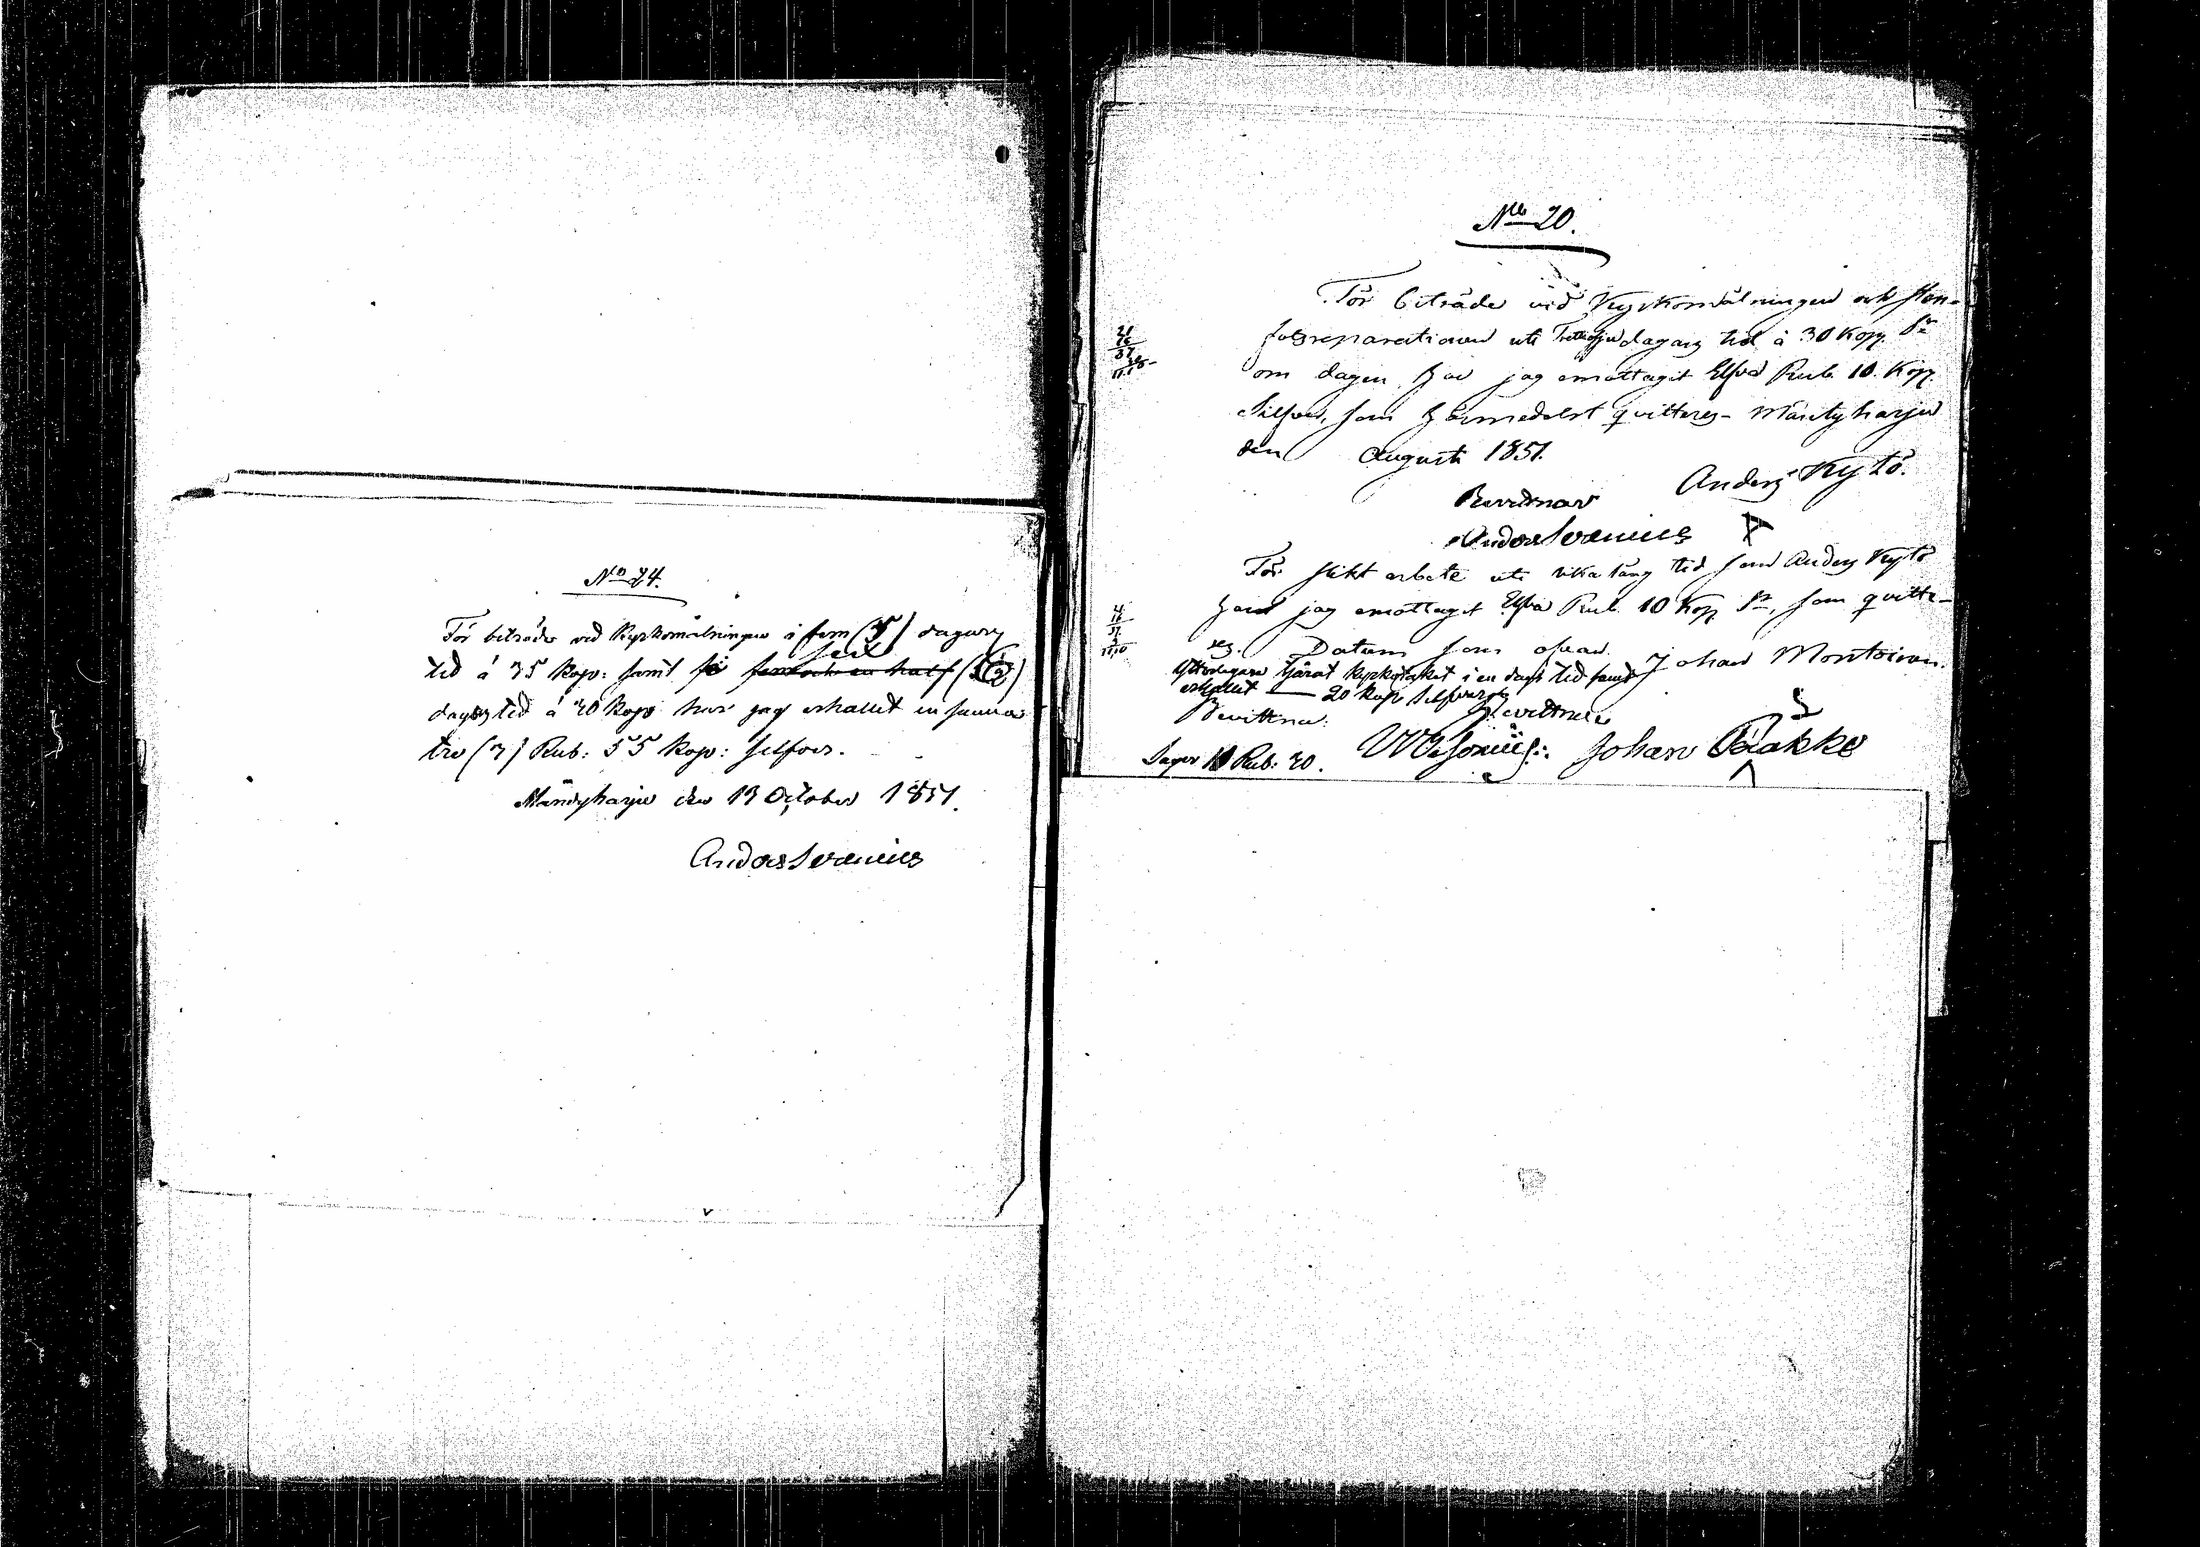 No 24.
För biträde vid Kyrkomålningen i fem (5) dagars
sex
tid á 35 Kop: samt fö fem och en half (6)
dagars tid á 30 Kop: har jag erhallit en summa
tre (3) Rub: 55 Kop: silfver.
Mändyharju den 13 October 1851.
Anders Serenius
No 20.
För biträde vid Kyrkomålningen och sten-
fotsreparationen uti dagars tid à 30 Kop. Sr
om dagen har jag emottagit Elfva Rub. 10 Kop.
Silfver, som härmedelst qvitteras. Mändyharju
den Augusti 1851.
Anders Kytö.
Bevittnar
Anders Serenius
För likt arbete uti lika lång tid som Anders Kytö
har jag emottagit Elfva Rub. 10 Kop Sr, som qvitte-
ras. Datum som ofvan. Johan Montoinen.
Ytterligare tjärat kyrkotaket i en dags tid samt
erhallit 20 Kop silfver
Bevittna: Bevittnar
Säger 11 Rub: 30. Johan Pakke